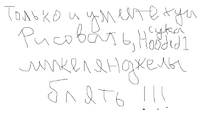 Только и умеете хуи
Рисовать, сука
Hooded1
микеланджелы
блять !!!